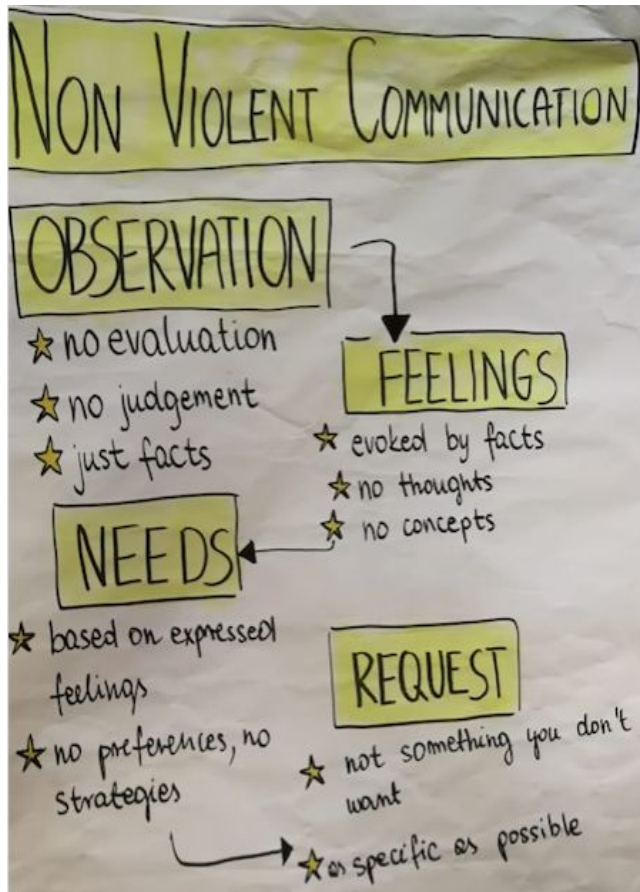 NON VIOLENT COMMUNICATION
OBSERVATION
no evaluation
no judgement
just facts
FEELINGS
evoked by facts
no thoughts
no concepts
NEEDS
based on expressed
feelings
no preferences, no
strategies
REQUEST
not something you don't
want
as specific as possible